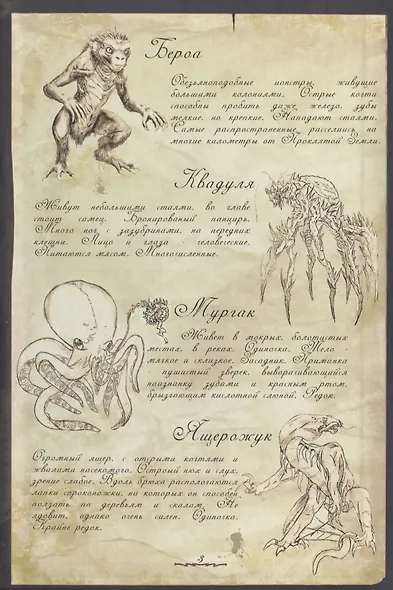 Бероа
Обезьяноподобные монстры, живущие
большими колониями. Острые когти
способны пробить даже железо, зубы
мелкие, но крепкие. Нападают стаями.
Самые распространенные, расселись на
многие километры от Проклятой Земли.
Квадуля
Живут небольшими стаями, во главе
стоит самец. Бронированый панцирь.
Много ног с зазубринами, на передних
клешни. Лицо и глаза - человеческие.
Питаются мясом. Многочисленные.
Мургак
Живет в мокрых, болотистых
местах, в реках. Одиночка. Тело -
мягкое и склизкое. Засадник. Приманка
- пушистый зверек, выворачивающийся
наизнанку зубами и красным ртом,
брызгающим кислотной слюной. Редок.
Ящерожук
Огромный ящер, с острыми когтями и
жвалами насекомого. Острый нюх и слух,
зрение слабое. Вдоль брюха распологаются
лапки сороконожки, на которых он способен
ползать по деревьям и скалам. Не
ядовит, однако очень силен. Одиночка.
Крайне редок.
3